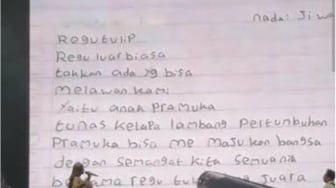 nada: Jiwa
Regu tulip
Regu luar biasa
takkan ada yg bisa
melawan kami
Yaitu anak Pramuka
tunas kelapa lambang Pertumbuhan
Pramuka bisa me majukan bangsa
dengan semangat kita semuanik
bersama regu juara